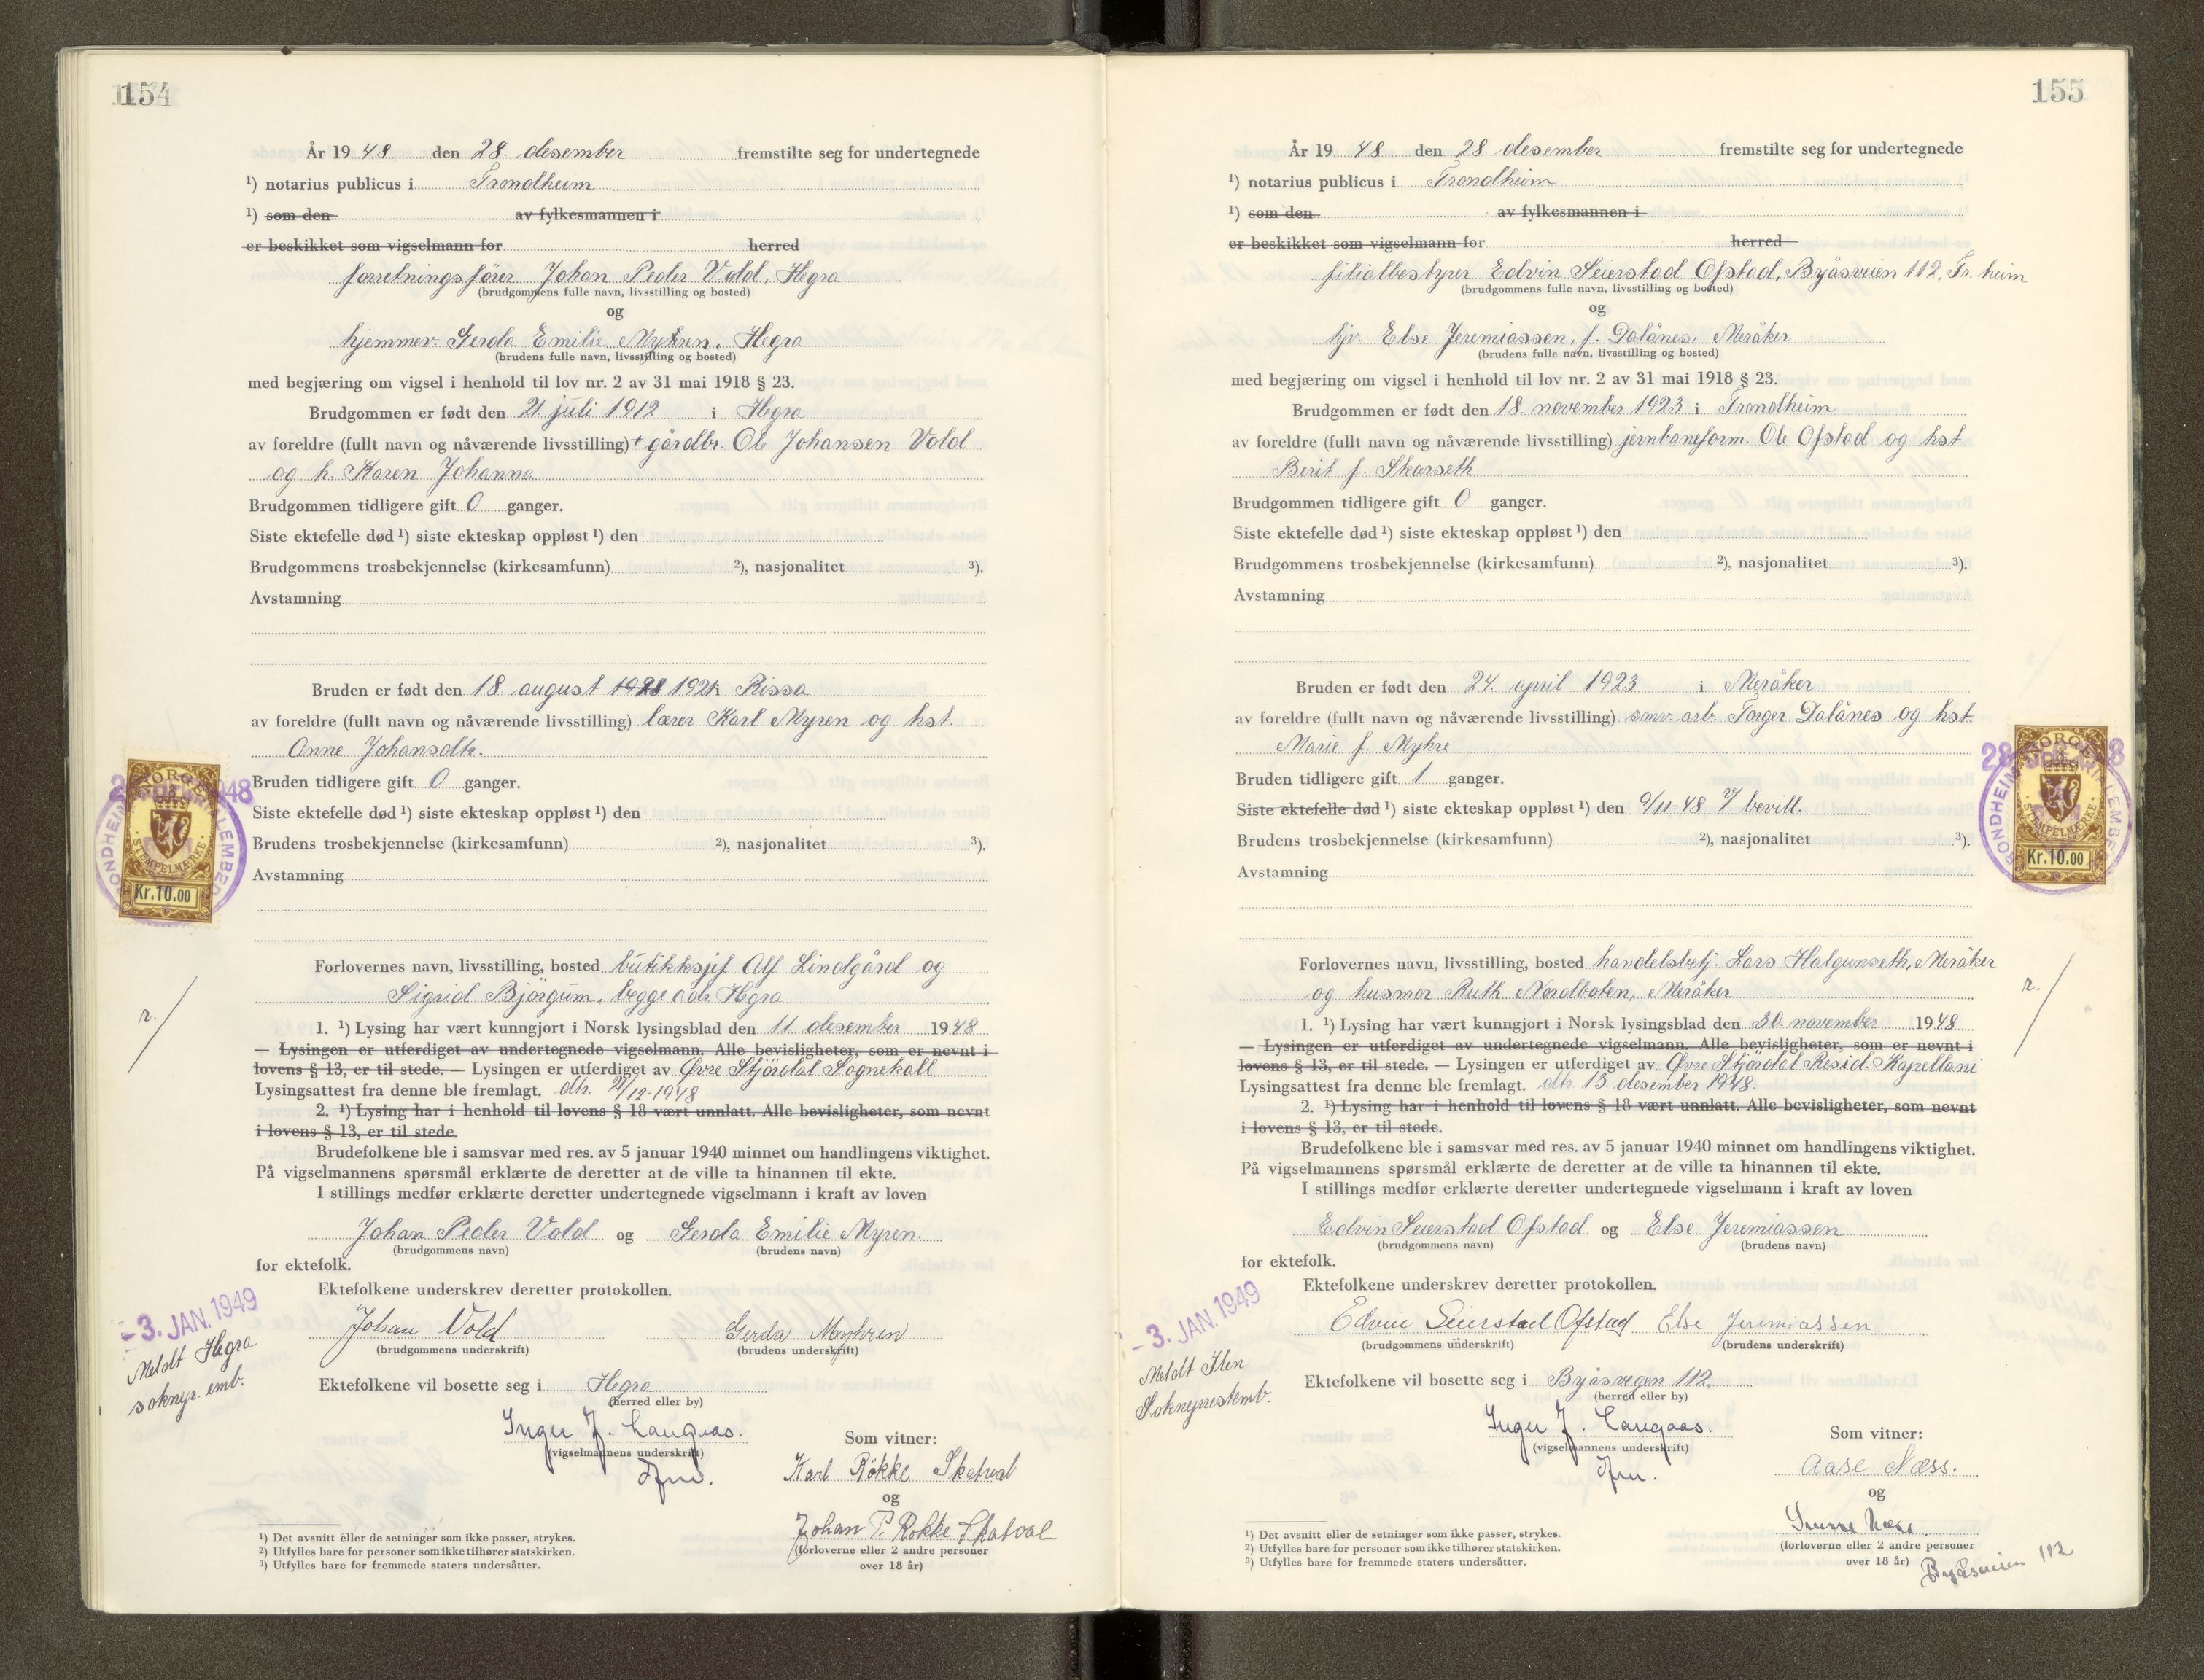 154
År 1948 den 28. desember fremstilte seg for undertegnede
¹) notarius publicus i Trondheim
¹) som den av fylkesmannen i
er beskikket som vigselmann for herred
forretningsfører Johan Peder Vold, Hegra
(brudgommens fulle navn, livsstilling og bosted)
og
hjemmev. Gerda Emilie Myhren, Hegra
(brudens fulle navn, livsstilling og bosted)
med begjæring om vigsel i henhold til lov nr. 2 av 31 mai 1918 § 23.
Brudgommen er født den 21 juli 1912 i Hegra
av foreldre (fullt navn og nåværende livsstilling) + gårdbr. Ole Johansen Vold
og h. Karen Johanna
Brudgommen tidligere gift 0 ganger.
Siste ektefelle død ¹) siste ekteskap oppløst ¹) den
Brudgommens trosbekjennelse (kirkesamfunn) ²), nasjonalitet ³).
Avstamning
Bruden er født den 18 august 1921 Rissa
av foreldre (fullt navn og nåværende livsstilling) lærer Karl Myren og hst.
Anne Johansdtr.
Bruden tidligere gift 0 ganger.
Siste ektefelle død ¹) siste ekteskap oppløst ¹) den
Brudens trosbekjennelse (kirkesamfunn) ²), nasjonalitet ³).
Avstamning
NORGE
STEMPELMÆRKE
Kr.10.00
Forlovernes navn, livsstilling, bosted butikksjef Alf Lindgård og
Sigrid Bjørgum, begge adr. Hegra
r. /
1. ¹) Lysing har vært kunngjort i Norsk lysingsblad den 11 desember 1948
— Lysingen er utferdiget av undertegnede vigselmann. Alle bevisligheter, som er nevnt i
lovens § 13, er til stede. — Lysingen er utferdiget av Øvre Stjørdal Sognekall
Lysingsattest fra denne ble fremlagt. dtr. 21/12-1948
2. ¹) Lysing har i henhold til lovens § 18 vært unnlatt. Alle bevisligheter, som nevnt
i lovens § 13, er til stede.
Brudefolkene ble i samsvar med res. av 5 januar 1940 minnet om handlingens viktighet.
På vigselmannens spørsmål erklærte de deretter at de ville ta hinannen til ekte.
I stillings medfør erklærte deretter undertegnede vigselmann i kraft av loven
Johan Peder Vold og Gerda Emilie Myren.
(brudgommens navn) (brudens navn)
for ektefolk.
Ektefolkene underskrev deretter protokollen.
- 3. JAN. 1949
Meldt Hegra
soknepr. emb.
Johan Vold Gerda Myhren
(brudgommens underskrift) (brudens underskrift)
Ektefolkene vil bosette seg i Hegra
(herred eller by)
Inger J. Langaas.
(vigselmannens underskrift)
Som vitner:
Karl Røkke Skatval
og
Johan P. Røkke Skatval
(forloverne eller 2 andre personer
over 18 år)
¹) Det avsnitt eller de setninger som ikke passer, strykes.
²) Utfylles bare for personer som ikke tilhører statskirken.
³) Utfylles bare for fremmede staters undersåtter.
155
År 1948 den 28 desember fremstilte seg for undertegnede
¹) notarius publicus i Trondheim
¹) som den av fylkesmannen i
er beskikket som vigselmann for herred
filialbestyrer Edvin Seierstad Ofstad, Byåsveien 112, Tr.heim
(brudgommens fulle navn, livsstilling og bosted)
og
hjv. Else Jeremiassen, f. Dalånes, Meråker
(brudens fulle navn, livsstilling og bosted)
med begjæring om vigsel i henhold til lov nr. 2 av 31 mai 1918 § 23.
Brudgommen er født den 18. november 1923 i Trondheim
av foreldre (fullt navn og nåværende livsstilling) jernbaneform. Ole Ofstad og hst.
Berit f. Skarseth
Brudgommen tidligere gift 0 ganger.
Siste ektefelle død ¹) siste ekteskap oppløst ¹) den
Brudgommens trosbekjennelse (kirkesamfunn) ²), nasjonalitet ³).
Avstamning
Bruden er født den 24. april 1923 i Meråker
av foreldre (fullt navn og nåværende livsstilling) smv. arb. Torger Dalånes og hst.
Marie f. Myhre
Bruden tidligere gift 1 ganger.
Siste ektefelle død ¹) siste ekteskap oppløst ¹) den 9/11-48 v/ bevill.
Brudens trosbekjennelse (kirkesamfunn) ²), nasjonalitet ³).
Avstamning
NORGE
STEMPELMÆRKE
Kr.10.00
Forlovernes navn, livsstilling, bosted handelsbetj. Lars Halgunseth, Meråker
og husmor Ruth Nordboten, Meråker
r. /
1. ¹) Lysing har vært kunngjort i Norsk lysingsblad den 30. november 1948
— Lysingen er utferdiget av undertegnede vigselmann. Alle bevisligheter, som er nevnt i
lovens § 13, er til stede. — Lysingen er utferdiget av Øvre Stjørdal Resid. Kapellani
Lysingsattest fra denne ble fremlagt. dtr. 13 desember 1948.
2. ¹) Lysing har i henhold til lovens § 18 vært unnlatt. Alle bevisligheter, som nevnt
i lovens § 13, er til stede.
Brudefolkene ble i samsvar med res. av 5 januar 1940 minnet om handlingens viktighet.
På vigselmannens spørsmål erklærte de deretter at de ville ta hinannen til ekte.
I stillings medfør erklærte deretter undertegnede vigselmann i kraft av loven
Edvin Seierstad Ofstad og Else Jeremiassen
(brudgommens navn) (brudens navn)
for ektefolk.
Ektefolkene underskrev deretter protokollen.
- 3. JAN. 1949
Meldt Ilen
Sokneprestemb.
Edvin Seierstad Ofstad Else Jeremiassen
(brudgommens underskrift) (brudens underskrift)
Ektefolkene vil bosette seg i Byåsvegen 112.
(herred eller by)
Inger J. Langaas.
(vigselmannens underskrift)
Som vitner:
Aase Næss.
og
(forloverne eller 2 andre personer
over 18 år)
Byåsveien 112
¹) Det avsnitt eller de setninger som ikke passer, strykes.
²) Utfylles bare for personer som ikke tilhører statskirken.
³) Utfylles bare for fremmede staters undersåtter.